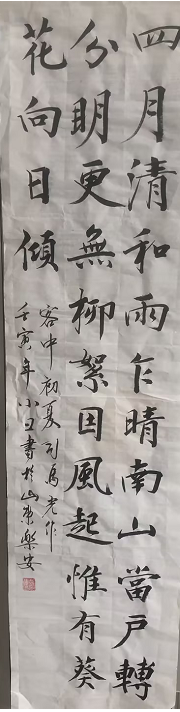 四月清和雨乍晴南山當戶轉
分明更無柳絮因風起惟有葵
花向日傾
客中初夏司馬光作
壬寅年小卫書於山東樂安